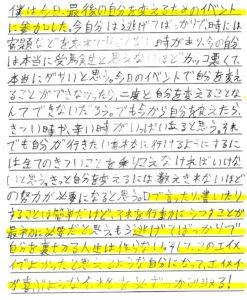 僕は今日、最後の自分を変えるためのイベント
に参加した。今自分は逃げてばっかりで時には
宿題などをおろそかにしない 時があり今の自分
は本当に受験生と思えないほどカッコ悪くて
本当にダサいと思う。今日のイベントで自分を変え
ることができなかったら、二度と自分を変えることな
んてできないだろう。でも今から自分を変えたら、
きつい時や、辛い時がいっぱいあると思う。それ
でも自分が行きたい 行けるようにするに
は全てのきついことを乗りこえなければいけな
いと思う。きっと自分を変えるには数えきれないほど
の努力が必要になると思う。口で言ったり、書いたり
することは簡単だけど、それを行動にうつすことが
最も必要だと思う。もう、逃げてばっかりで
自分を裏切る人生は作らない。そして、このエイメイ
でよかったと思えるような自分になって、エイメイ
が喜ぶような 必ずつかみとる！